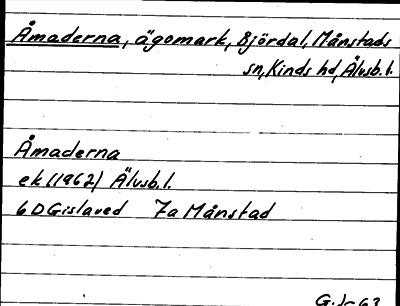 Åmaderna, ägomark, Björdal, Månstads
sn, Kinds hd, Älvsb. l.
Åmaderna
ek (1962) Älvsb. l.
6D Gislaved 7a Månstad